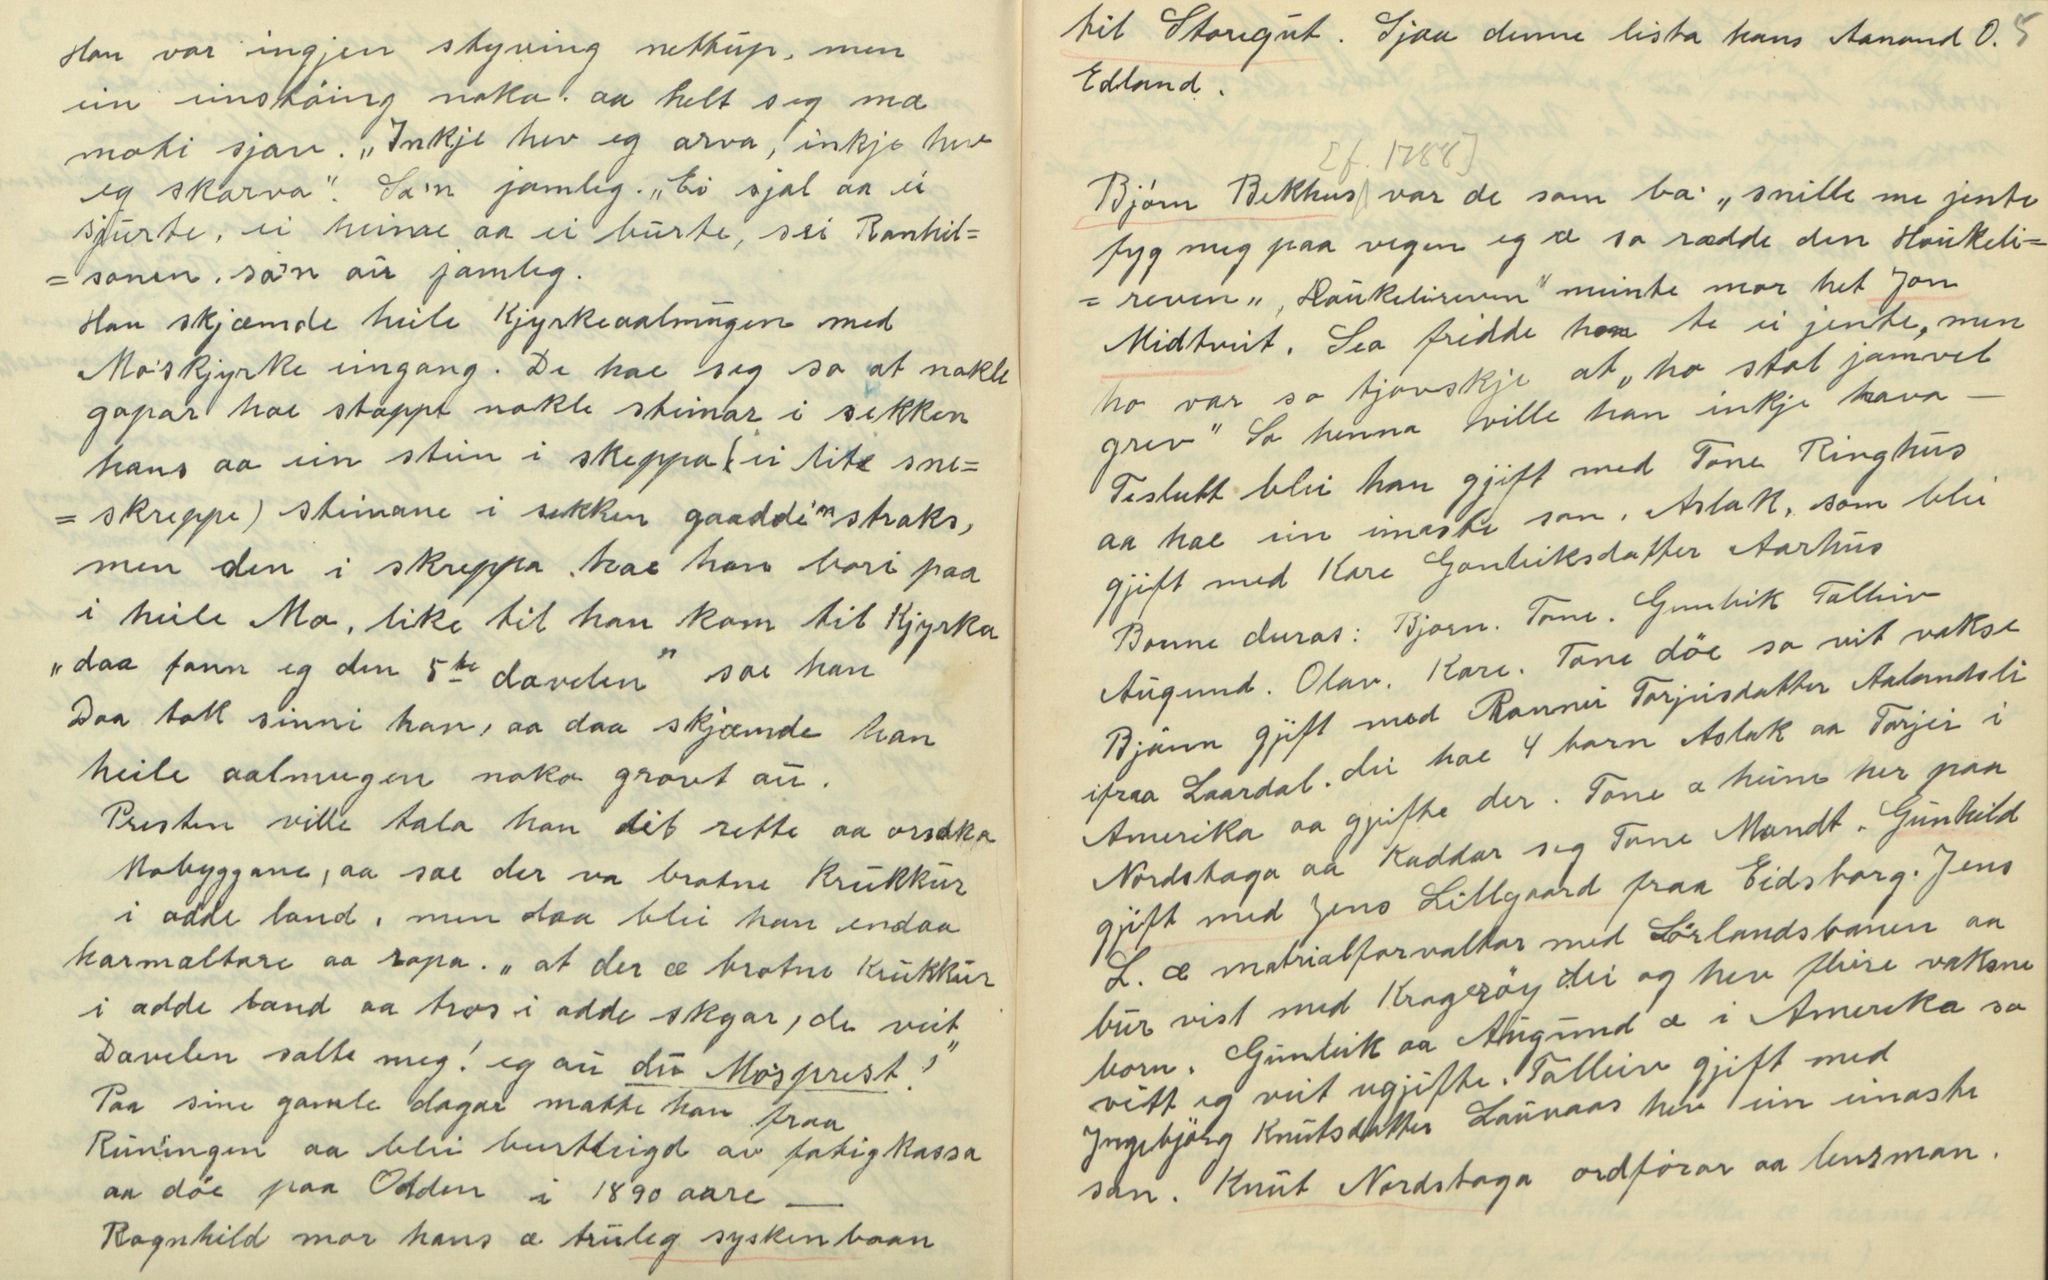 Han var ingjen styving nettup, men
ein einstöing noko. aa helt seg mæ
moti sjav. „Inkje hev eg arva, inkje hev
eg skarva". Sa'n jamleg. „Ei sjal aa ei
sjurte, ei heime aa ei burte, sei Ranhil=
=sonen. sa'n au jamleg.
Han skjæmde heile Kjyrkeaalmugen med
Mo'skjyrke eingang. De hae seg so at nokle
gapar hae stappt nokle steinar i sekken
hans aa ein stein i skeppa (ei lite sne=
=skreppe) steinane i sekken gaadde'n straks,
men den i skreppa hae han bori paa
i heile Mo, like til han kom til Kjyrka
„daa fann eg den 5te davelen" sae han
Daa tok sinni han, aa daa skjæmde han
heile aalmugen noko grovt au.
Presten ville tala han til rette aa orsaka
Mobyggane, aa sae der va brotne Krukkur
i adde land, men daa blei han endaa
harmaltare aa ropa. „at der æ brotne Krukkur
i adde land aa tros i adde skgar, de veit
Davelen salte meg! eg au du Mo'sprest!"
Paa sine gamle dagar matte han fraa
Runingen aa blei burtleigd av fatigkassa
aa döe paa Odden i 1890 aare —
Ragnhild mor hans æ truleg syskenbaan
til Storegut. Sjaa denne lista hans Aanond O. 5
Edland.
[f. 1788]
Björn Bekhus var de som ba: „snille me jente
fyg meg paa vegen eg æ so rædde den Haukeli=
=reven„ „Haukelireven" meinte mor het Jon
Midtveit. Sea fridde han te ei jente, men
ho var so tjovskje at „ho stal jamvel
grev" So henna ville han inkje hava —
Teslutt blei han gjift med Tone Ringhus
aa hae ein einaste son. Aslak, som blei
gjift med Kare Gonleiksdatter Aarhus
Bonne deras: Bjorn. Tone. Gunleik Talleiv
Augund. Olav. Kare. Tone döe so vit vakse
Björn gjift med Rannei Torjeisdatter Aalandsli
ifraa Laardal. dei hae 4 born Aslak aa Torjei i
Amerika aa gjifte der. Tone æ heime her paa
Nordstoga aa kaddar seg Tone Mandt. Gunhild
gjift med Jens Lillgaard fraa Eidsborg. Jens
L. æ matrialforvaltar med Sörlandsbanen aa
bur vist med Kragerøy dei og hev fleire vaksne
born. Gunleik aa Augund æ i Amerika so
vitt eg veit ugjifte. Talleiv gjift med
Ingebjörg Knutsdatter Lauvaas hev ein einaste
son. Knut Nordstoga ordförar aa lensman.